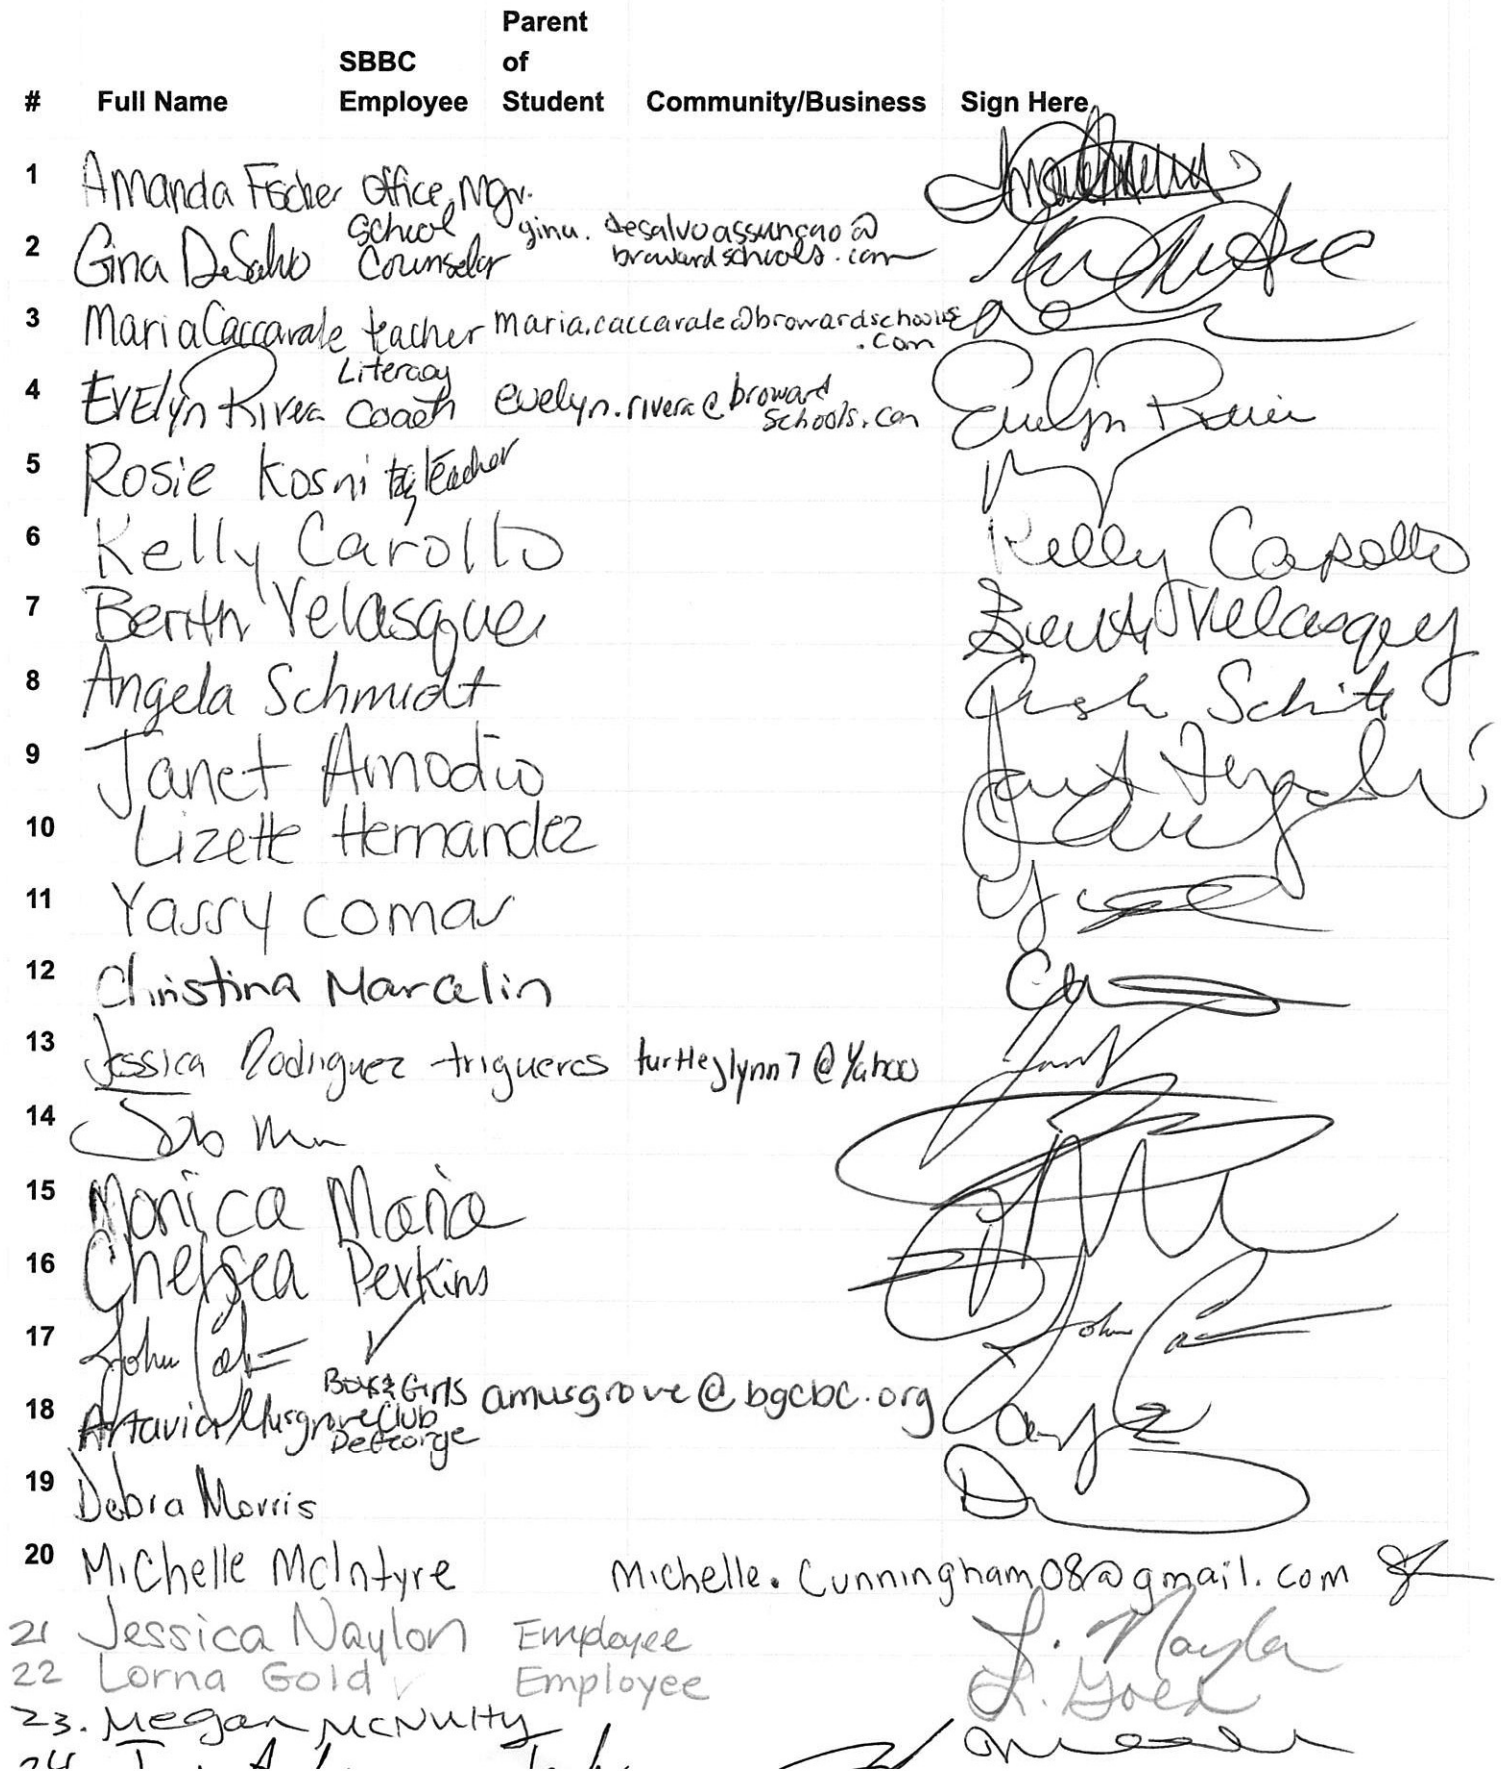 Parent
SBBC of
# Full Name Employee Student Community/Business Sign Here
1 Amanda Fischer Office Mgr.
2 Gina DeSalvo School Counselor gina.desalvoassuncao@browardschools.com
3 Maria Caccavale teacher maria.caccavale@browardschools.com
4 Evelyn Rivera Literacy Coach evelyn.rivera@browardschools.com Evelyn Rivera
5 Rosie Kosnitzky teacher
6 Kelly Carollo Kelly Carollo
7 Berith Velasquez Berith Velasquez
8 Angela Schmidt
9 Janet Amodio
10 Lizette Hernandez
11 Yassy Comas
12 Christina Marcelin
13 Jessica Rodriguez trigueros turtlejlynn7@Yahoo
14
15 Monica Maria
16 Chelsea Perkins
17 John John
18 Artavia Musgrove Boys & Girls Club DeGeorge amusgrove@bgcbc.org
19 Debra Morris
20 Michelle McIntyre Michelle.Cunningham08@gmail.com
21 Jessica Naylon Employee J. Naylon
22 Lorna Gold Employee L. Gold
23. Megan McNulty
24